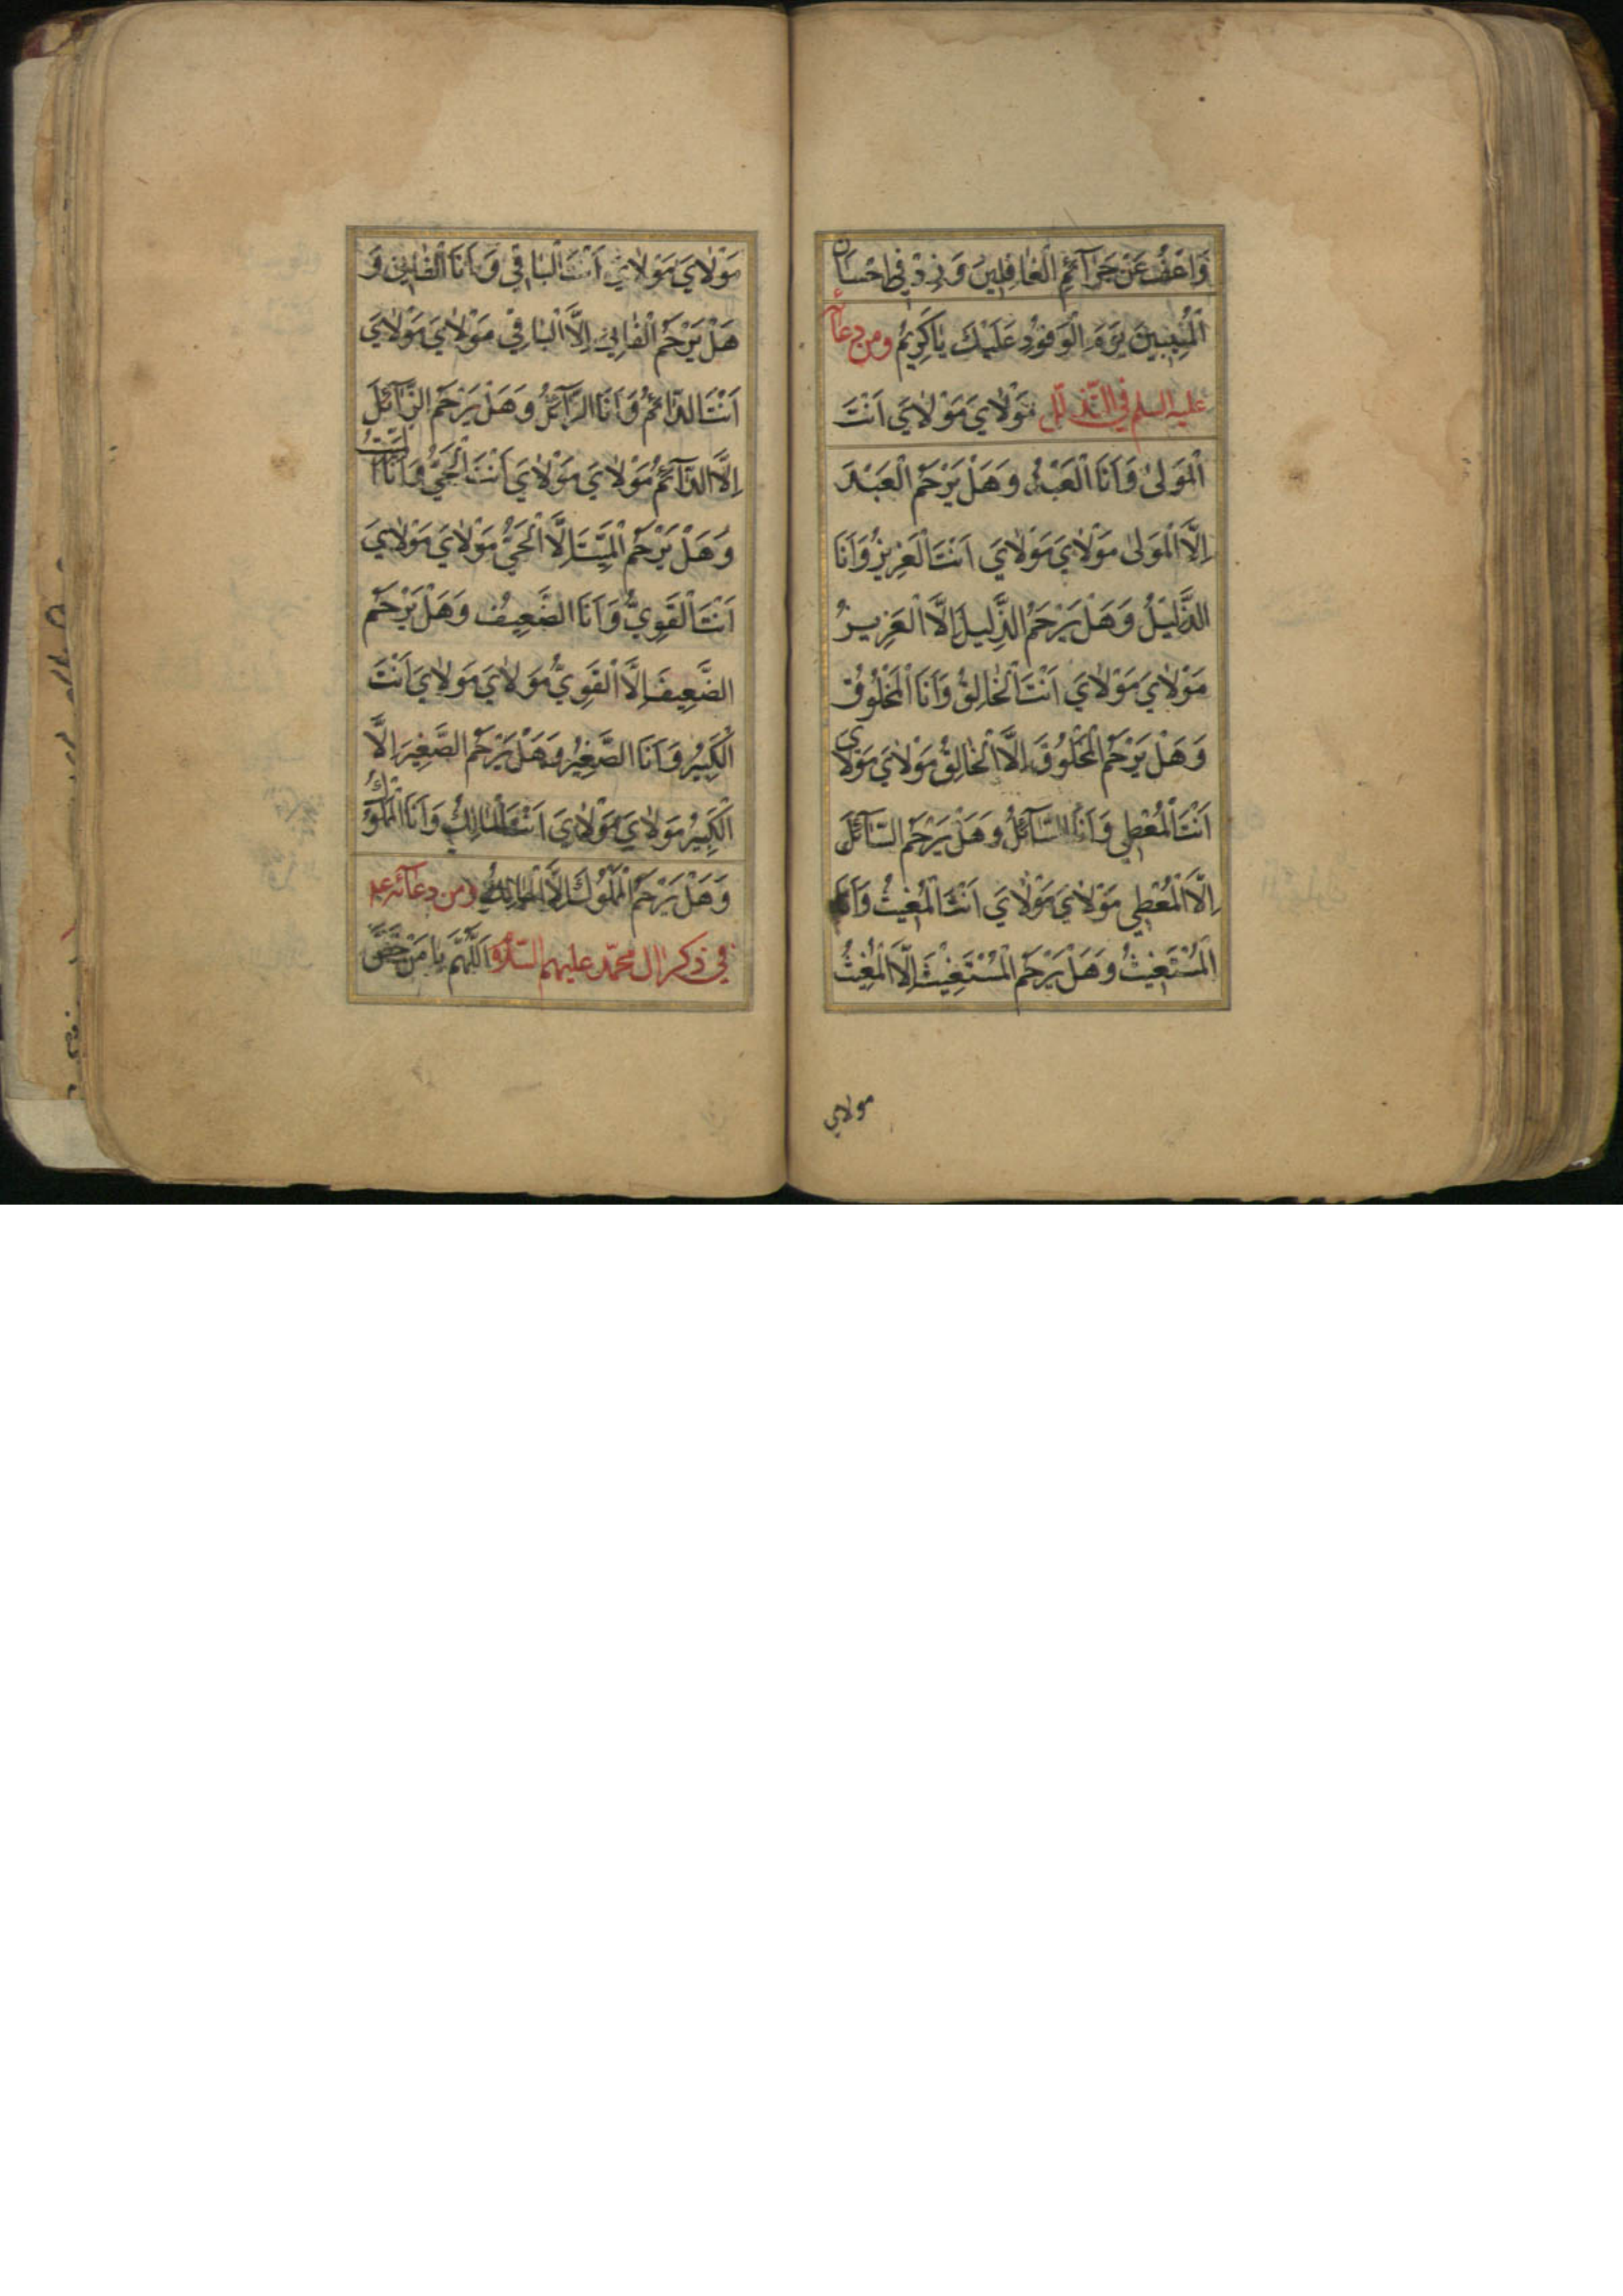 وَاعْفُ عَنْ جَرَآئِمِ الْغَافِلِينَ وَزِدْ فِي اِحْسَانِ
الْمُنِيبِينَ يَوْمَ الْوُفُودِ عَلَيْكَ يَا كَرِيمُ ومن دعائه
عليه السلم في التذلل مَوْلَايَ مَوْلَايَ اَنْتَ
الْمَوْلَى وَاَنَا الْعَبْدُ وَهَلْ يَرْحَمُ الْعَبْدَ
اِلَّا الْمَوْلَى مَوْلَايَ مَوْلَايَ اَنْتَ الْعَزِيزُ وَاَنَا
الذَّلِيلُ وَهَلْ يَرْحَمُ الذَّلِيلَ اِلَّا الْعَزِيزُ
مَوْلَايَ مَوْلَايَ اَنْتَ الْخَالِقُ وَاَنَا الْمَخْلُوقُ
وَهَلْ يَرْحَمُ الْمَخْلُوقَ اِلَّا الْخَالِقُ مَوْلَايَ مَوْلَايَ
اَنْتَ الْمُعْطِي وَاَنَا السَّآئِلُ وَهَلْ يَرْحَمُ السَّآئِلَ
اِلَّا الْمُعْطِي مَوْلَايَ مَوْلَايَ اَنْتَ الْمُغِيثُ وَاَنَا
الْمُسْتَغِيثُ وَهَلْ يَرْحَمُ الْمُسْتَغِيثَ اِلَّا الْمُغِيثُ
مولاي
مَوْلَايَ مَوْلَايَ اَنْتَ الْبَاقِي وَاَنَا الْفَانِي وَ
هَلْ يَرْحَمُ الْفَانِيَ اِلَّا الْبَاقِي مَوْلَايَ مَوْلَايَ
اَنْتَ الدَّآئِمُ وَاَنَا الزَّآئِلُ وَهَلْ يَرْحَمُ الزَّآئِلَ
اِلَّا الدَّآئِمُ مَوْلَايَ مَوْلَايَ اَنْتَ الْحَيُّ وَاَنَا الْمَيِّتُ
وَهَلْ يَرْحَمُ الْمَيِّتَ اِلَّا الْحَيُّ مَوْلَايَ مَوْلَايَ
اَنْتَ الْقَوِيُّ وَاَنَا الضَّعِيفُ وَهَلْ يَرْحَمُ
الضَّعِيفَ اِلَّا الْقَوِيُّ مَوْلَايَ مَوْلَايَ اَنْتَ
الْكَبِيرُ وَاَنَا الصَّغِيرُ وَهَلْ يَرْحَمُ الصَّغِيرَ اِلَّا
الْكَبِيرُ مَوْلَايَ مَوْلَايَ اَنْتَ الْمَالِكُ وَاَنَا الْمَمْلُوكُ
وَهَلْ يَرْحَمُ الْمَمْلُوكَ اِلَّا الْمَالِكُ ومن دعآئه ع‍
في ذكر ال محمد عليهم السلام اَللّٰهُمَّ يَا مَنْ خَصَّ